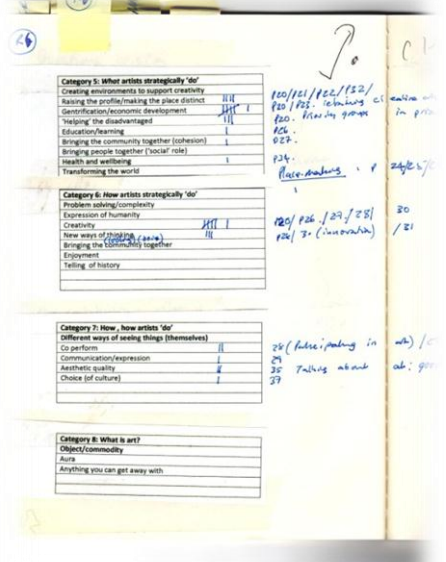 26
Category 5: What artists strategically 'do'
Creating environments to support creativity
Raising the profile/making the place distinct
Gentrification/economic development
'Helping' the disadvantaged
Education/learning
Bringing the community together (cohesion)
Bringing people together ('social' role)
Health and wellbeing
Transforming the world
P20/P21/P22/P32/
P20.
P26.
P34.
Place-making
Category 6: How artists strategically 'do'
Problem solving/complexity
Expression of humanity
Creativity
New ways of thinking
Bringing the community together
Enjoyment
Telling of history
P20/P26./29./28/ 30
P26/30 (innovation) /31
Category 7: How, how artists 'do'
Different ways of seeing things (themselves)
Co perform
Communication/expression
Aesthetic quality
Choice (of culture)
28 (Participating in
29
35 Talking about
37
Category 8: What is art?
Object/commodity
Aura
Anything you can get away with